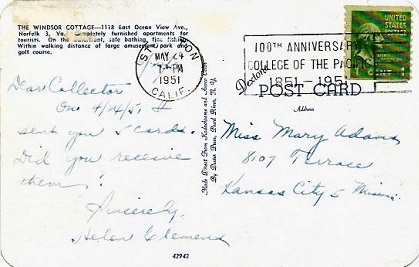 THE WINDSOR COTTAGE—1118 East Ocean View Ave.,
Norfolk 3, Va. Completely furnished apartments for
tourists. On the waterfront, safe bathing, fine fishing.
Within walking distance of large amusement park and
golf course.
MAY 24
PM
1951
CALIF.
100TH ANNIVERSARY
COLLEGE OF THE PACIFIC
1851-1951
UNITED STATES
Dear Collector
On 4/24/51 I
sent you 5 cards.
Did you receive
them?
Sincerely,
Helen Clemens
Made Direct From Kodachrome and Ansco Color
By Dexter Press, Pearl River, N. Y.
Dexter
POST CARD
Address
Miss Mary Adams
8107 Terrace
Kansas City 5 Missouri
42942